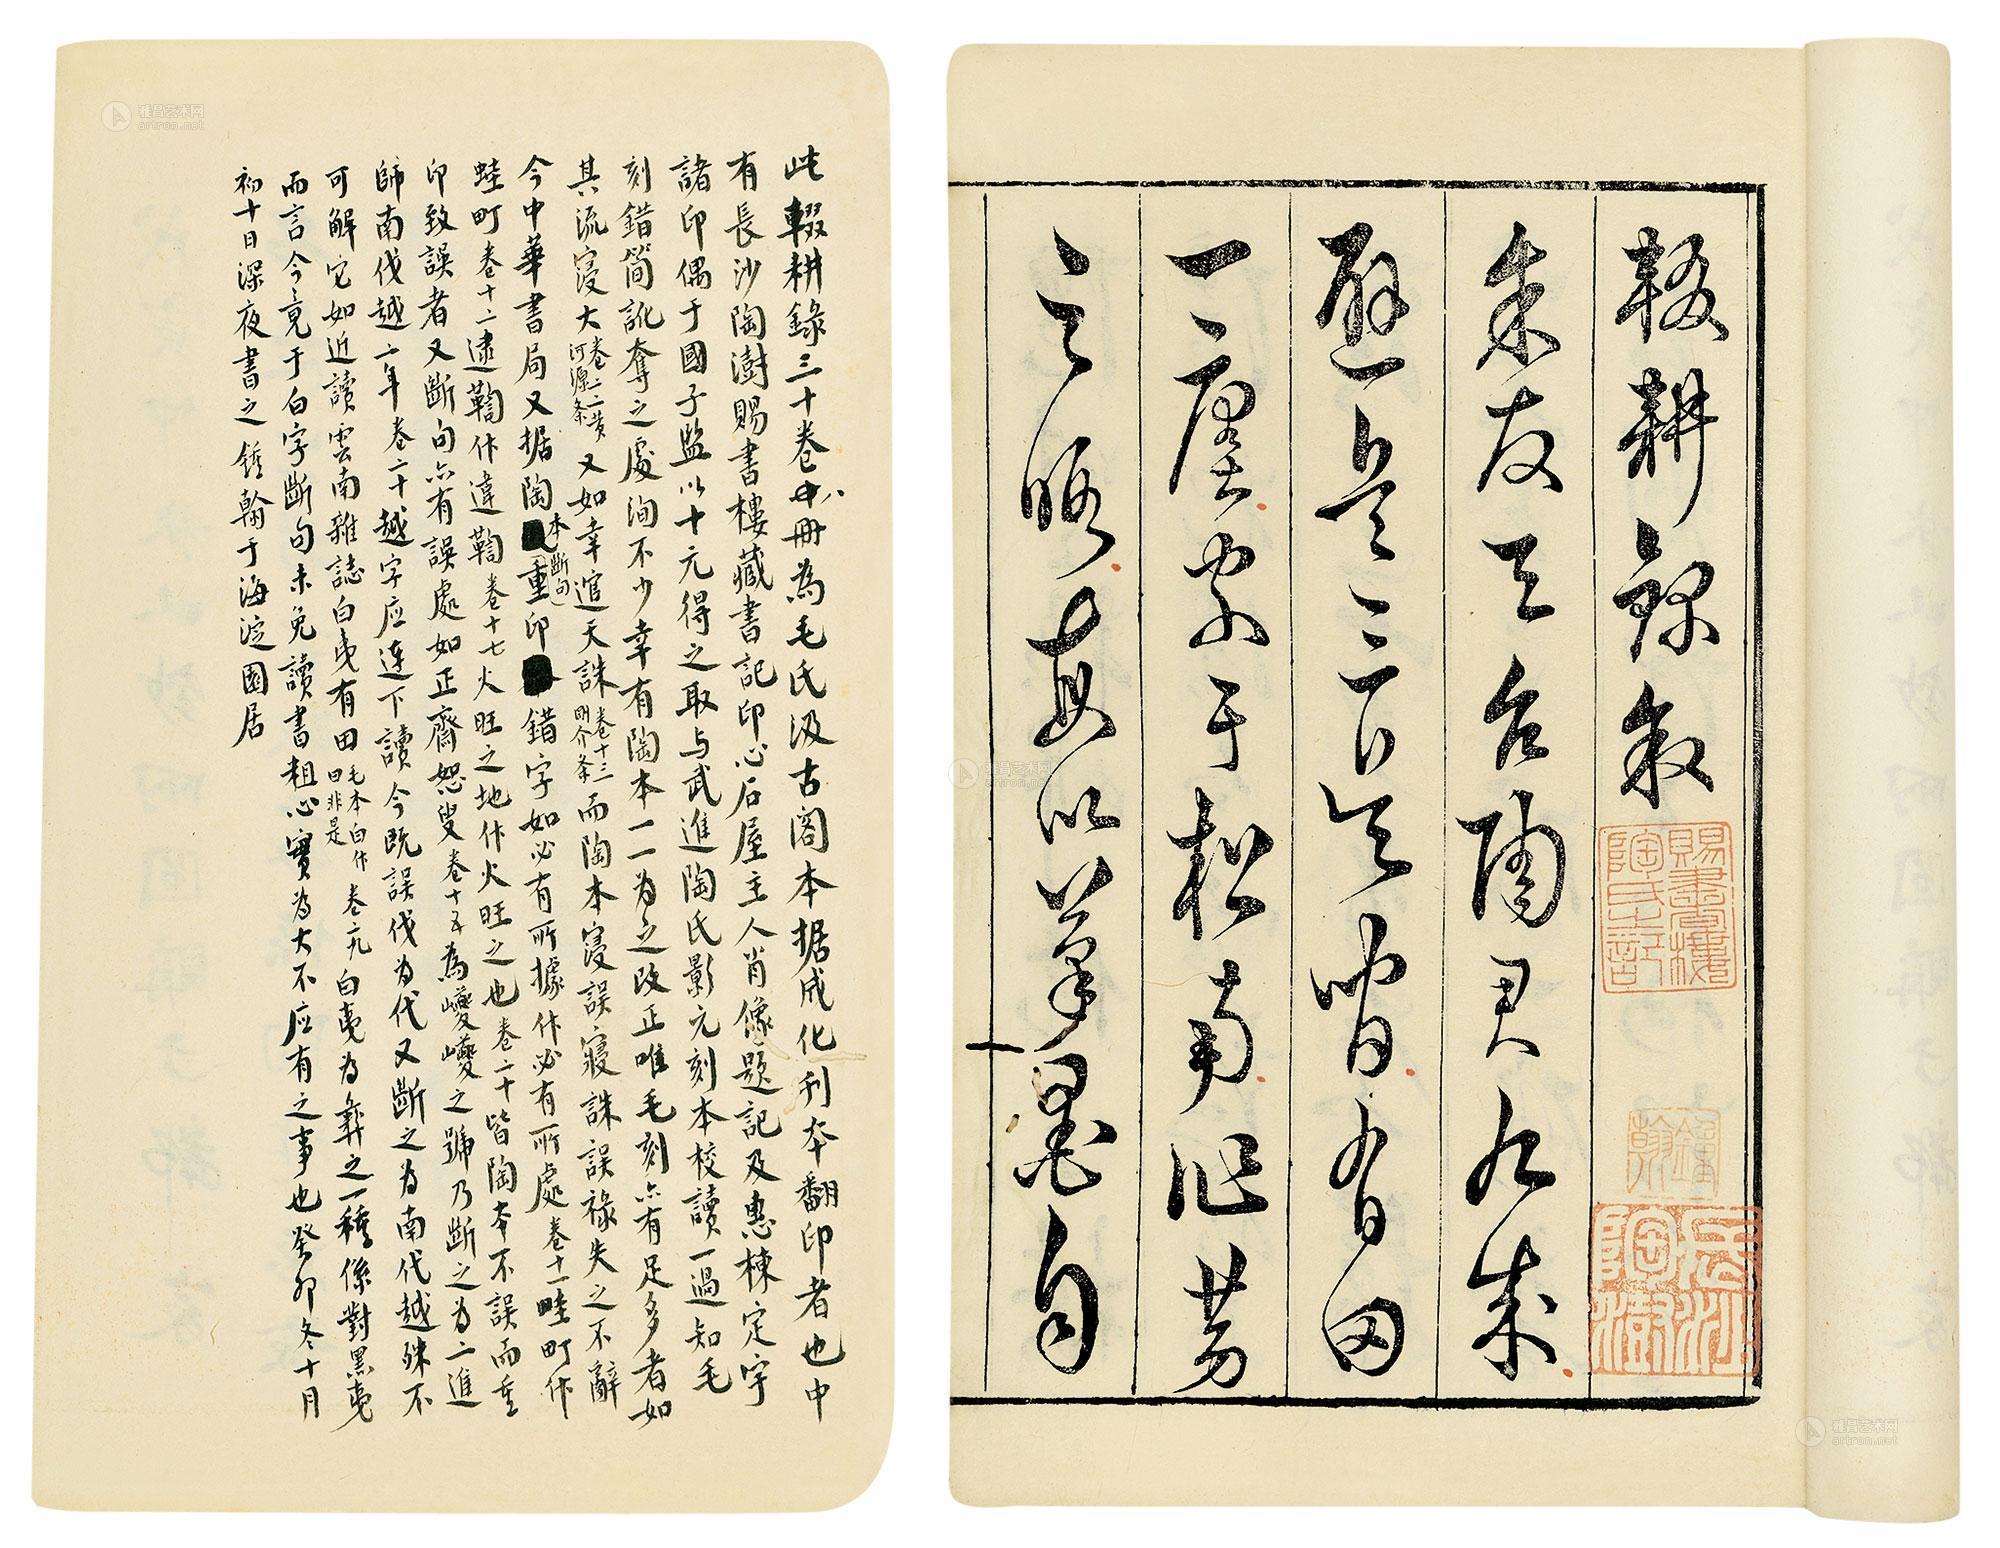 輟耕錄敘
余友天台陶君九成
避兵三吳間有田
一廛家于松南作勞
之暇每以筆墨自
賜書樓陶氏之記
鍾翰
長沙陶澍
此輟耕錄三十卷八冊為毛氏汲古閣本据成化刊本翻印者也中
有長沙陶澍賜書樓藏書記印心石屋主人肖像題記及惠棟定宇
諸印偶于國子監以十元得之取与武進陶氏影元刻本校讀一過知毛
刻錯簡訛奪之處洵不少幸有陶本一一為之改正唯毛刻亦有足多者如
其流寖大卷二二黄河源条又如幸逭天誅卷十三剛介条而陶本寖誤寢誅誤祿失之不辭
今中華書局又据陶本(断句)重印錯字如必有所據作必有所處卷十一畦町作
蛙町卷十二逮鞫作違鞫卷十七火旺之地作火旺之也卷二十皆陶本不誤而重
印致誤者又斷句亦有誤處如正齋恕叟卷十五為巙巙之號乃斷之為二進
師南伐越二年卷二十越字应連下讀今既誤伐为代又斷之为南代越殊不
可解它如近讀雲南雜誌白夷有田毛本白作曰非是卷二九白夷为彝之一種係對黑夷
而言今竟于白字斷句未免讀書粗心實为大不应有之事也癸卯冬十月
初十日深夜書之鍾翰于海淀園居
雅昌艺术网
artron.net
雅昌艺术网
artron.net